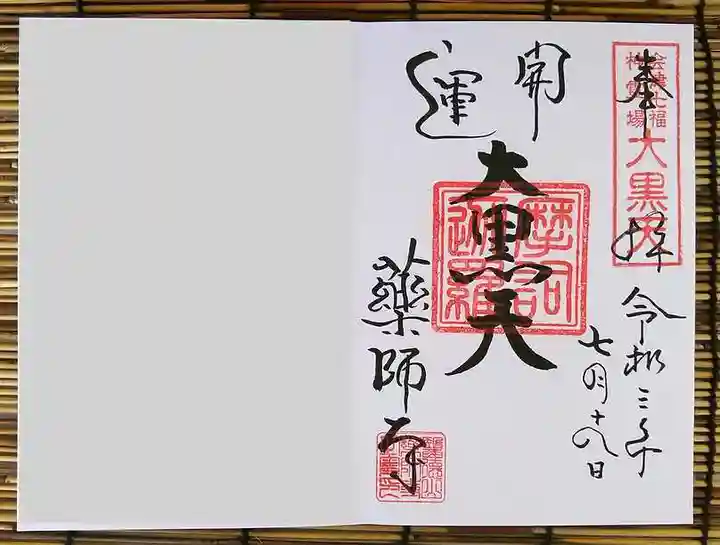 奉拝
会津七福
神霊場
大黒天
令和三年
七月十八日
開運
大黒天
摩訶
迦羅
薬師寺